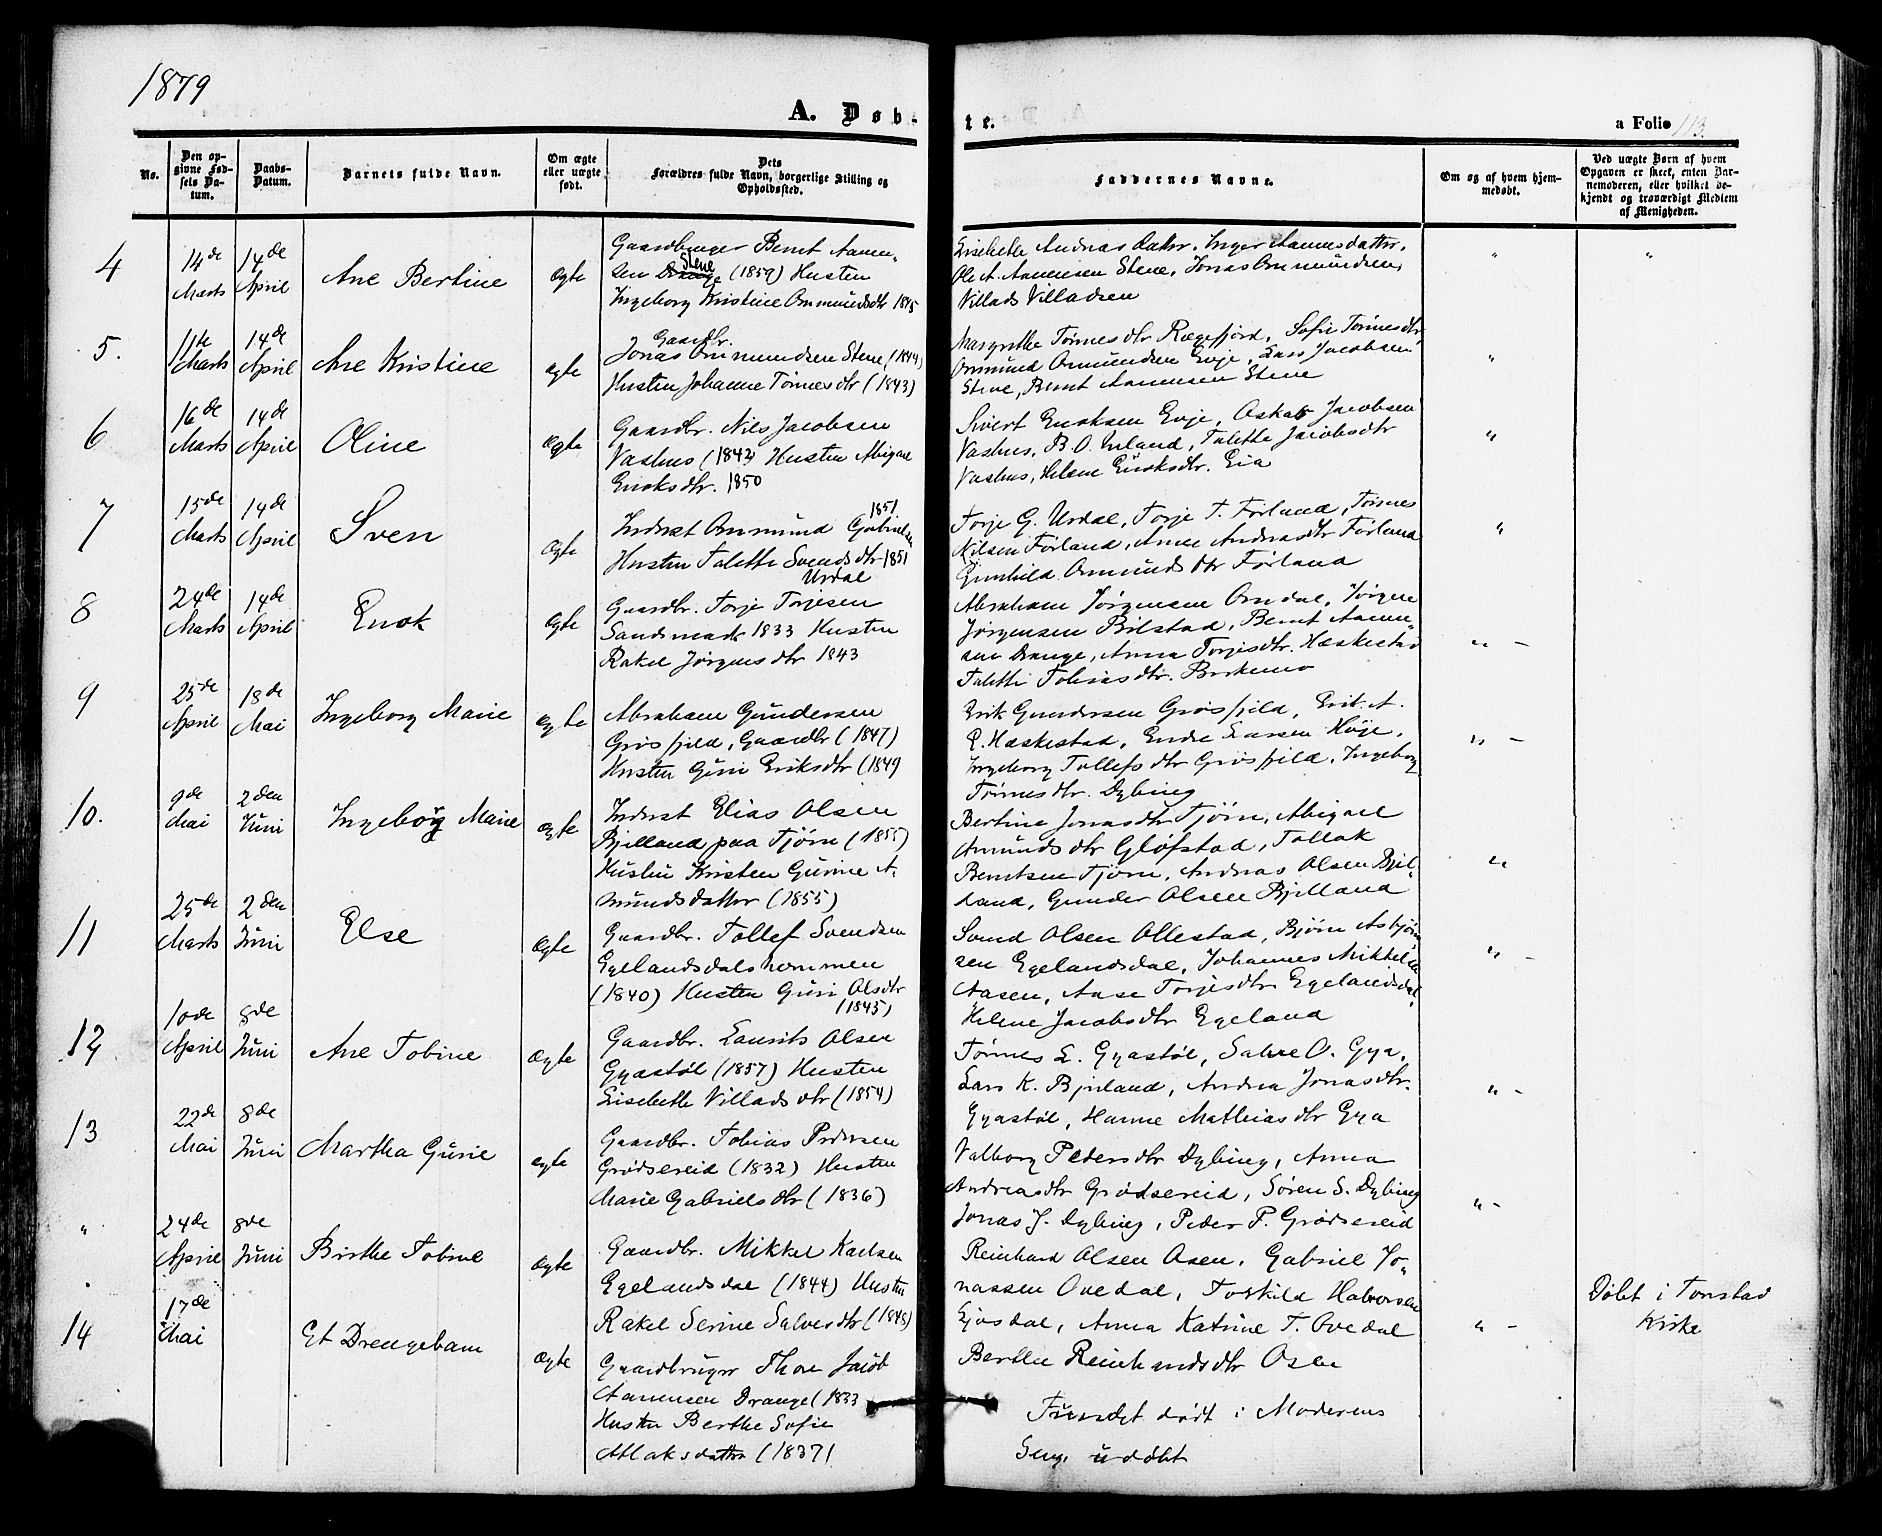 1879
A. Døb-
te.
a Folio 113
No.
Den op-
givne Fød-
sels Da-
tum.
Daabs-
Datum.
Barnets fulde Navn.
Om ægte
eller uægte
født.
Dets
Forældres fulde Navn, borgerlige Stilling og
Opholdssted.
Faddernes Navne.
Om og af hvem hjem-
medøbt.
Ved uægte Børn af hvem
Opgaven er skeet, enten Bar-
nemoderen, eller hvilket be-
kjendt og troværdigt Medlem
af Menigheden.
4
14de
Marts
14de
April
Ane Bertine
ægte
Gaardbruger Bernt Aanen-
sen Drange Stene (1859) Hustru
Ingeborg Kristine Ommundsdtr 1845
Lisebethe Andreasdatter, Inger Aanensdatter,
Ole A. Aanensen Stene, Jonas Ommundsen,
Villads Villadsen
"
"
5.
11te
Marts
14de
April
Ane Kristine
ægte
Gaardbr.
Jonas Ommundsen Stene (1844)
Hustru Johanne Tønnesdtr (1843)
Margrethe Tønnesdtr Rægefjord, Sofie Tønnesdtr
Ommund Ommundsen Evje, Lars Jacobsen
Stene, Bernt Aanensen Stene
"
6
16de
Marts
14de
April
Oline
ægte
Gaardbr. Nils Jacobsen
Vashus (1842) Hustru Abigael
Enoksdtr. 1850
Sivert Enoksen Evje, Oskar Jacobsen
Vashus, B. O. Urland, Talette Jacobsdtr
Vashus, Helene Enoksdtr. Eia
"
7
15de
Marts
14de
April
Sven
ægte
1851
Inderst Ommund Gabrielsen
Hustru Talette Svendsdtr 1851
Urdal
Torje G. Urdal, Torje T. Førland, Tønnes
Nilsen Førland, Anne Andreasdtr Førland
Gunhild Ommundsdtr Førland
"
8
24de
Marts
14de
April
Enok
ægte
Gaardbr. Torje Torjesen
Sandsmark 1833 Hustru
Rakel Jørgensdtr 1843
Abraham Jørgensen Omdal, Jørgen
Jørgensen Bilstad, Bernt Aanen-
sen Drange, Anna Torjesdtr. Hæskestad
Talette Tobiasdtr. Birkemo
" -
9
25de
April
18de
Mai
Ingeborg Marie
ægte
Abraham Gundersen
Grøsfjeld, Gaardbr (1847)
Hustru Guri Eriksdtr (1849
Erik Gundersen Grøsfjeld, Erik A.
R. Hæskestad, Endre Larsen Høje,
Ingeborg Tollefsdtr Grøsfjeld, Ingeborg
Tønnesdtr. Dybing
" -
10.
9de
Mai
2den
Juni
Ingeborg Marie
ægte
Inderst Elias Olsen
Bjelland paa Tjørn (1855)
Hustru Kristen Gurine A-
mundsdatter (1855)
Bertine Jonasdtr Tjørn, Abigael
Amundsdtr Gløfstad, Tollak
Berntsen Tjørn, Andreas Olsen Bjel-
land, Gunder Olsen Bjelland
"
11
25de
Marts
2den
Juni
Else
ægte
Gaardbr. Tollef Svendsen
Egelandsdalshommen
(1840) Hustru Guri Olsdtr
(1845)
Svend Olsen Ollestad, Bjørn Asbjørn-
sen Egelandsdal, Johannes Mikkelsen
Aasen, Aase Torjesdtr Egelandsdal,
Helene Jacobsdtr Egeland
" -
12
10de
April
8de
Juni
Ane Tobine
ægte
Gaardbr. Laurits Olsen
Gyastøl (1857) Hustru
Lisebethe Villadsdtr (1854)
Tønnes L. Gyastøl, Salve O. Gya,
Lars K. Bjuland, Andrea Jonasdtr.
Gyastøl, Hanne Mathiasdtr Gya
" -
13
22de
Mai
8de
Juni
Martha Gurie
ægte
Gaardbr. Tobias Pedersen
Grødsereid (1832) Hustru
Marie Gabrielsdtr (1836)
Valborg Pedersdtr Dybing, Anna
Andreasdtr Grødsereid, Søren S. Dybing
Jonas J. Dybing, Peder P. Grødsereid
" -
"
24de
April
8de
Juni
Birthe Tobine
ægte
Gaardbr. Mikkel Karlsen
Egelandsdal (1844) Hustru
Rakel Serine Salvesdtr (1848)
Reinhard Olsen Osen, Gabriel Jo-
nassen Ovedal, Torkild Halvorsen
Gjosdal, Anna Katrine T. Ovedal
Berthe Reinhardsdtr Osen
" -
Døbt i Tonstad
Kirke
14
17de
Mai
Et Drengebarn
ægte
Gaardbruger Thore Jacob
Aanensen Drange (1833
Hustru Berthe Sofie
Atlaksdatter (1837)
Fundet dødt i Moderens
Seng, udøbt